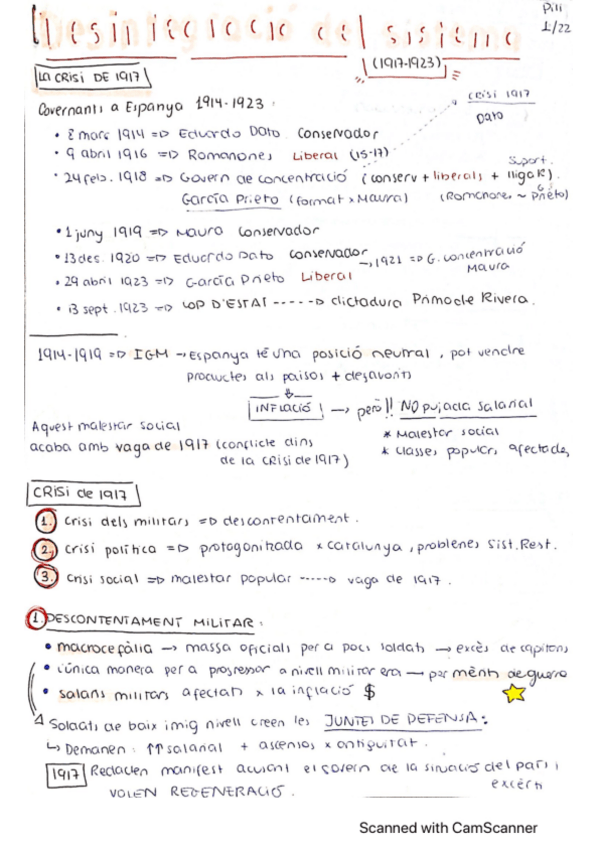 Desintegració del sistema
Pili
1/22
(1917-1923)
LA CRISI DE 1917
Governants a Espanya 1914-1923:
crisi 1917
Dato
• 8 març 1914 => Eduardo DATO conservador
• 9 abril 1916 => Romanones Liberal (15-17)
• 24 feb. 1918 => Govern de concentració (conserv + liberals + lliga R).
Suport.
García Prieto (format x Maura)
(Romanones ~ Prieto)
• 1 juny 1919 => Maura conservador
• 13 des. 1920 => Eduardo Dato conservador
→ 1921 => G. concentració
Maura
• 29 abril 1923 => García Prieto Liberal
• 13 sept. 1923 => COP D'ESTAT -----> dictadura Primo de Rivera.
1914-1919 => IGM → Espanya té una posició neutral, pot vendre
productes als països + desfavorits
INFLACIÓ → però!! NO pujada salarial
* Malestar social
* classes populars afectades
Aquest malestar social
acaba amb vaga de 1917 (conflicte dins
de la crisi de 1917)
CRISI de 1917
1. Crisi dels militars => descontentament.
2. Crisi política => protagonitzada x Catalunya, problemes Sist. Rest.
3. Crisi social => malestar popular -----> vaga de 1917.
1. DESCONTENTAMENT MILITAR:
• macrocefàlia → massa oficials per a pocs soldats → excés de capitans
• L'única manera per a progressar a nivell militar era → per mèrits de guerra
• salaris militars afectats x la inflació $
Soldats de baix i mig nivell creen les JUNTES DE DEFENSA:
↳ Demanen: ↑↑ salarial + ascensos x antiguitat.
1917 Redacten manifest acusant el govern de la situació del país i
exèrcit
VOLEN REGENERACIÓ.
Scanned with CamScanner